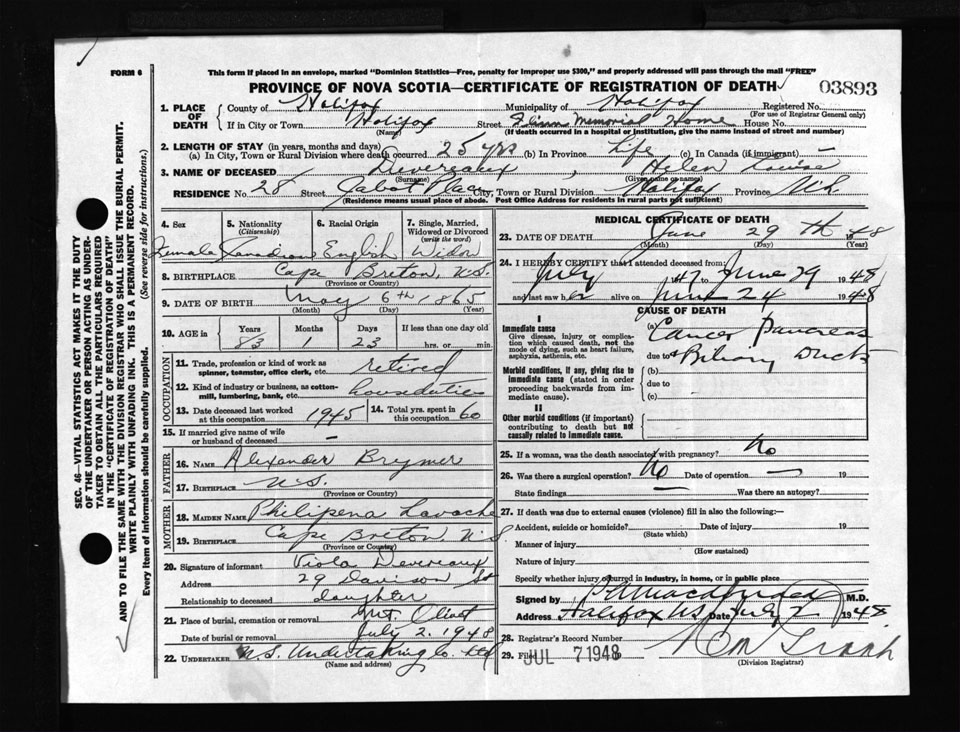 FORM 6
This form if placed in an envelope, marked "Dominion Statistics—Free, penalty for improper use $300," and properly addressed will pass through the mail "FREE"
PROVINCE OF NOVA SCOTIA—CERTIFICATE OF REGISTRATION OF DEATH
03893
1. PLACE OF DEATH
County of Halifax Municipality of Halifax Registered No.
(For use of Registrar General only)
If in City or Town Halifax Street Memorial Home House No.
(Name) (If death occurred in a hospital or institution, give the name instead of street and number)
2. LENGTH OF STAY (in years, months and days)
(a) In City, Town or Rural Division where death occurred 25 yrs (b) In Province Life (c) In Canada (if immigrant) —
3. NAME OF DECEASED Devereaux, Helen Louise
(Surname) (Given name or names)
RESIDENCE No. 28 Street Jabot Place City, Town or Rural Division Halifax Province N.S.
(Residence means usual place of abode. Post Office Address for residents in rural parts not sufficient)
4. Sex
Female
5. Nationality
(Citizenship)
Canadian
6. Racial Origin
English
7. Single, Married, Widowed or Divorced
(write the word)
Widow
8. BIRTHPLACE Cape Breton, N.S.
(Province or Country)
9. DATE OF BIRTH May 6th 1865
(Month) (Day) (Year)
10. AGE in
Years Months Days If less than one day old
83 1 23 hrs. or min.
OCCUPATION
11. Trade, profession or kind of work as spinner, teamster, office clerk, etc. retired
12. Kind of industry or business, as cotton-mill, lumbering, bank, etc. houseduties
13. Date deceased last worked at this occupation 1945
14. Total yrs. spent in this occupation 60
15. If married give name of wife or husband of deceased —
FATHER
16. NAME Alexander Brymer
17. BIRTHPLACE N.S.
(Province or Country)
MOTHER
18. MAIDEN NAME Philipena Lavache
19. BIRTHPLACE Cape Breton, N.S.
(Province or Country)
20. Signature of informant Viola Devereaux
Address 29 Davison St
Relationship to deceased daughter
21. Place of burial, cremation or removal Mt. Olivet
Date of burial or removal July 2. 1948
22. UNDERTAKER N.S. Undertaking Co. Ltd
(Name and address)
MEDICAL CERTIFICATE OF DEATH
23. DATE OF DEATH June 29th 1948
(Month) (Day) (Year)
24. I HEREBY CERTIFY that I attended deceased from:
July 1947 to June 29 1948
and last saw her alive on June 24 1948
CAUSE OF DEATH
I
Immediate cause
Give disease, injury or complication which caused death, not the mode of dying, such as heart failure, asphyxia, asthenia, etc.
(a) Cancer Pancreas
due to & Biliary Ducts
Morbid conditions, if any, giving rise to immediate cause (stated in order proceeding backwards from immediate cause).
(b)
due to
(c)
II
Other morbid conditions (if important) contributing to death but not causally related to immediate cause.
25. If a woman, was the death associated with pregnancy? No
26. Was there a surgical operation? No Date of operation — 19
State findings — Was there an autopsy?
27. If death was due to external causes (violence) fill in also the following:—
Accident, suicide or homicide? Date of injury 19
(State which)
Manner of injury
(How sustained)
Nature of injury
Specify whether injury occurred in industry, in home, or in public place
Signed by M.D.
Address Halifax NS Date July 2 1948
28. Registrar's Record Number
29. Filed JUL 7 1948 19
(Division Registrar)
SEC. 46—VITAL STATISTICS ACT MAKES IT THE DUTY
OF THE UNDERTAKER OR PERSON ACTING AS UNDER-
TAKER TO OBTAIN ALL THE PARTICULARS REQUIRED
IN THE "CERTIFICATE OF REGISTRATION OF DEATH"
AND TO FILE THE SAME WITH THE DIVISION REGISTRAR WHO SHALL ISSUE THE BURIAL PERMIT.
WRITE PLAINLY WITH UNFADING INK. THIS IS A PERMANENT RECORD.
Every item of information should be carefully supplied. (See reverse side for instructions.)